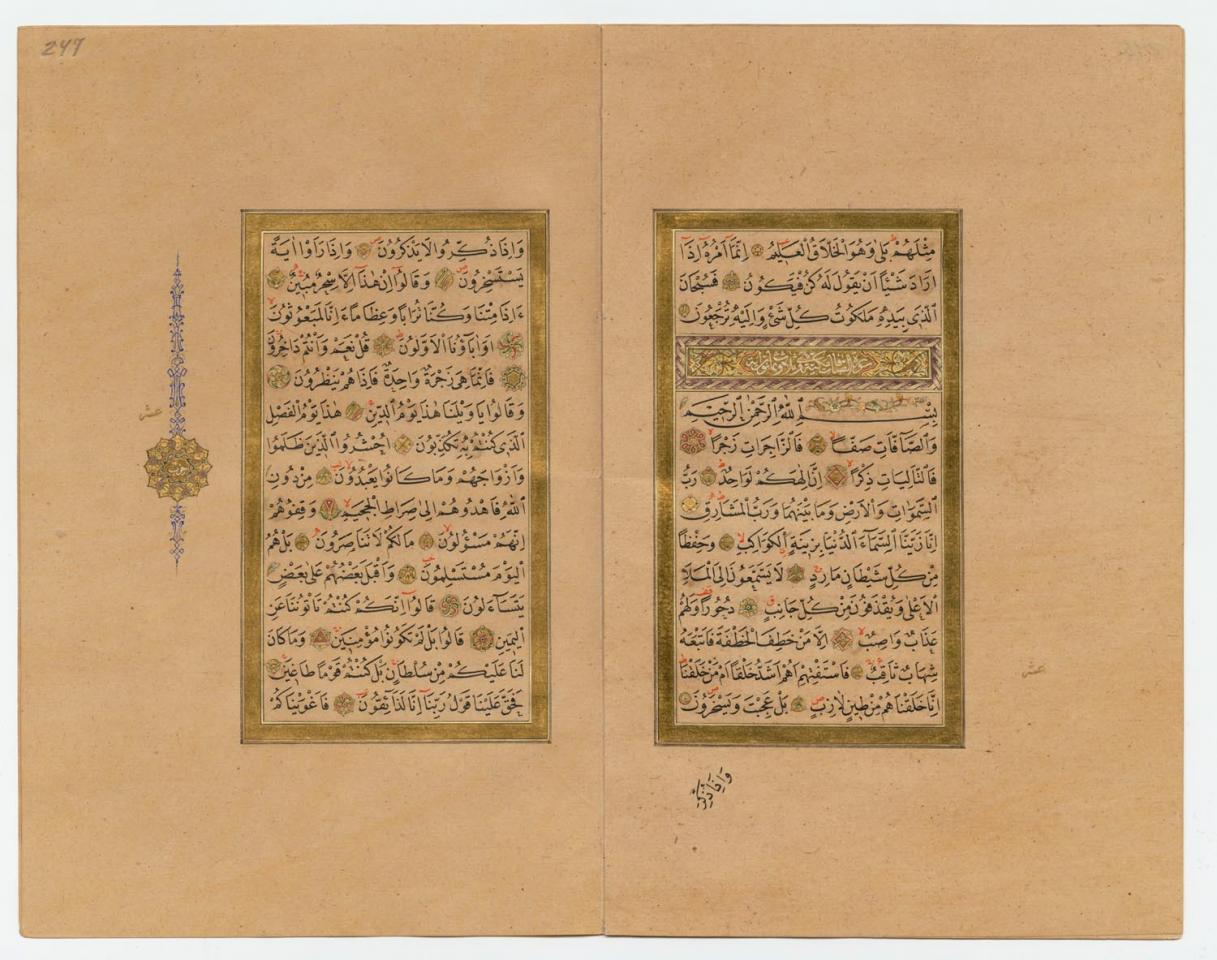 مِثْلَهُمْ بَلٰى وَهُوَ الْخَلَّاقُ الْعَلِيمُ اِنَّمَٓا اَمْرُهُٓ اِذَٓا
اَرَادَ شَيْـًٔا اَنْ يَقُولَ لَهُ كُنْ فَيَكُونُ فَسُبْحَانَ
الَّذِى بِيَدِهِ مَلَكُوتُ كُلِّ شَىْءٍ وَاِلَيْهِ تُرْجَعُونَ
بِسْمِ اللّٰهِ الرَّحْمٰنِ الرَّحِيمِ
وَالصَّٓافَّاتِ صَفًّا فَالزَّاجِرَاتِ زَجْرًا
فَالتَّالِيَاتِ ذِكْرًا اِنَّ اِلٰهَكُمْ لَوَاحِدٌ رَبُّ
السَّمٰوَاتِ وَالْاَرْضِ وَمَا بَيْنَهُمَا وَرَبُّ الْمَشَارِقِ
اِنَّا زَيَّنَّا السَّمَٓاءَ الدُّنْيَا بِزِينَةٍ الْكَوَاكِبِ وَحِفْظًا
مِنْ كُلِّ شَيْطَانٍ مَارِدٍ لَا يَسَّمَّعُونَ اِلَى الْمَلَاِ
الْاَعْلٰى وَيُقْذَفُونَ مِنْ كُلِّ جَانِبٍ دُحُورًا وَلَهُمْ
عَذَابٌ وَاصِبٌ اِلَّا مَنْ خَطِفَ الْخَطْفَةَ فَاَتْبَعَهُ
شِهَابٌ ثَاقِبٌ فَاسْتَفْتِهِمْ اَهُمْ اَشَدُّ خَلْقًا اَمْ مَنْ خَلَقْنَا
اِنَّا خَلَقْنَاهُمْ مِنْ طِينٍ لَازِبٍ بَلْ عَجِبْتَ وَيَسْخَرُونَ
عشر
وَاِذَا ذُكِّرُ
247
وَاِذَا ذُكِّرُوا لَا يَذْكُرُونَ وَاِذَا رَاَوْا اٰيَةً
يَسْتَسْخِرُونَ وَقَالُٓوا اِنْ هٰذَٓا اِلَّا سِحْرٌ مُبِينٌ
ءَاِذَا مِتْنَا وَكُنَّا تُرَابًا وَعِظَامًا ءَاِنَّا لَمَبْعُوثُونَ
اَوَاٰبَٓاؤُنَا الْاَوَّلُونَ قُلْ نَعَمْ وَاَنْتُمْ دَاخِرُونَ
فَاِنَّمَا هِىَ زَجْرَةٌ وَاحِدَةٌ فَاِذَا هُمْ يَنْظُرُونَ
وَقَالُوا يَا وَيْلَنَا هٰذَا يَوْمُ الدِّينِ هٰذَا يَوْمُ الْفَصْلِ
الَّذِى كُنْتُمْ بِهِ تُكَذِّبُونَ اُحْشُرُوا الَّذِينَ ظَلَمُوا
وَاَزْوَاجَهُمْ وَمَا كَانُوا يَعْبُدُونَ مِنْ دُونِ
اللّٰهِ فَاهْدُوهُمْ اِلٰى صِرَاطِ الْجَحِيمِ وَقِفُوهُمْ
اِنَّهُمْ مَسْؤُلُونَ مَا لَكُمْ لَا تَنَاصَرُونَ بَلْ هُمُ
الْيَوْمَ مُسْتَسْلِمُونَ وَاَقْبَلَ بَعْضُهُمْ عَلٰى بَعْضٍ
يَتَسَٓاءَلُونَ قَالُٓوا اِنَّكُمْ كُنْتُمْ تَاْتُونَنَا عَنِ
الْيَمِينِ قَالُوا بَلْ لَمْ تَكُونُوا مُؤْمِنِينَ وَمَا كَانَ
لَنَا عَلَيْكُمْ مِنْ سُلْطَانٍ بَلْ كُنْتُمْ قَوْمًا طَاغِينَ
فَحَقَّ عَلَيْنَا قَوْلُ رَبِّنَا اِنَّا لَذَٓائِقُونَ فَاَغْوَيْنَاكُمْ
عشر